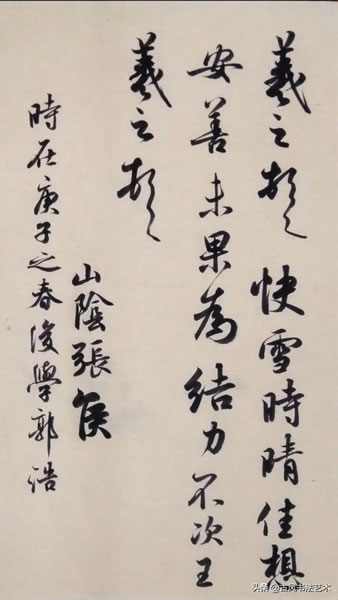 羲之頓首 快雪時晴佳想
安善未果為結力不次王
羲之頓首
山陰張侯
時在庚子之春後學郭浩
头条 @古风书法艺术